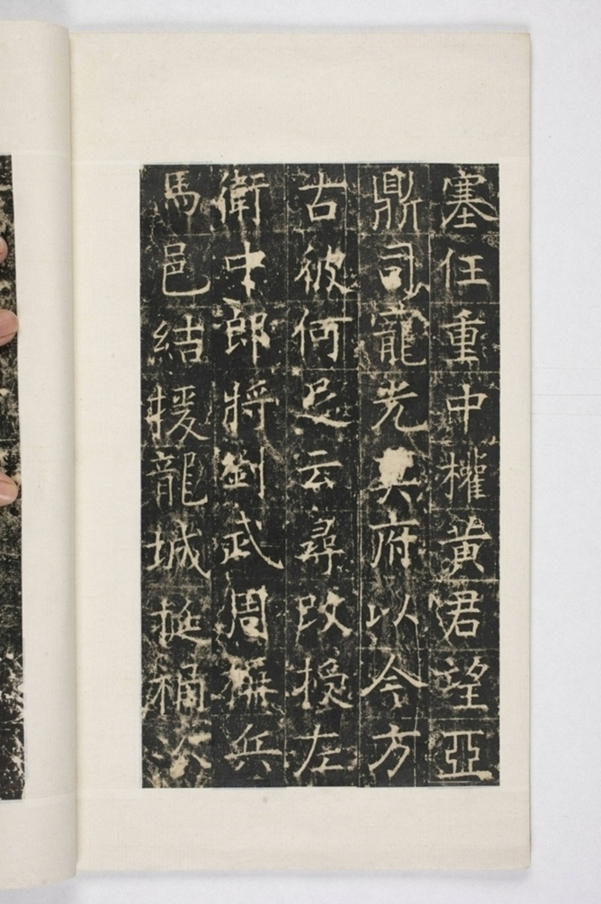 塞任重中權黃君望亞
鼎司寵光府以今方
古彼何足云尋改授左
衛中郎將劉武周兵
馬邑結援龍城挺